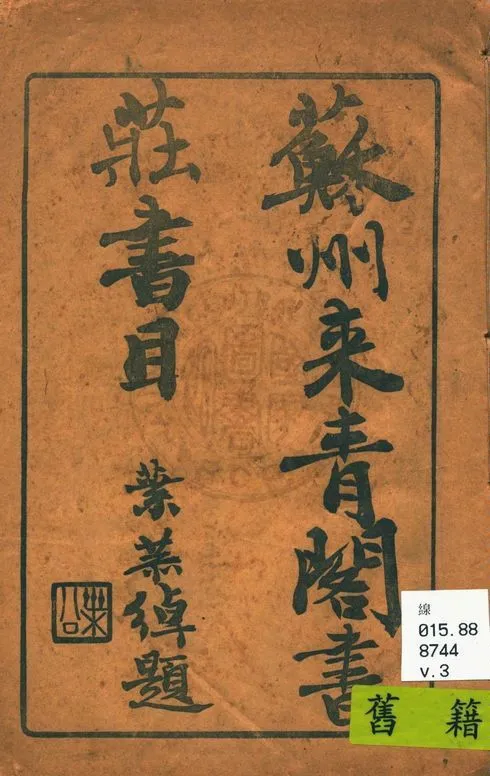 蘇州来青閣書
莊書目
葉葉倬題
線
015.88
8744
v.3
舊 籍